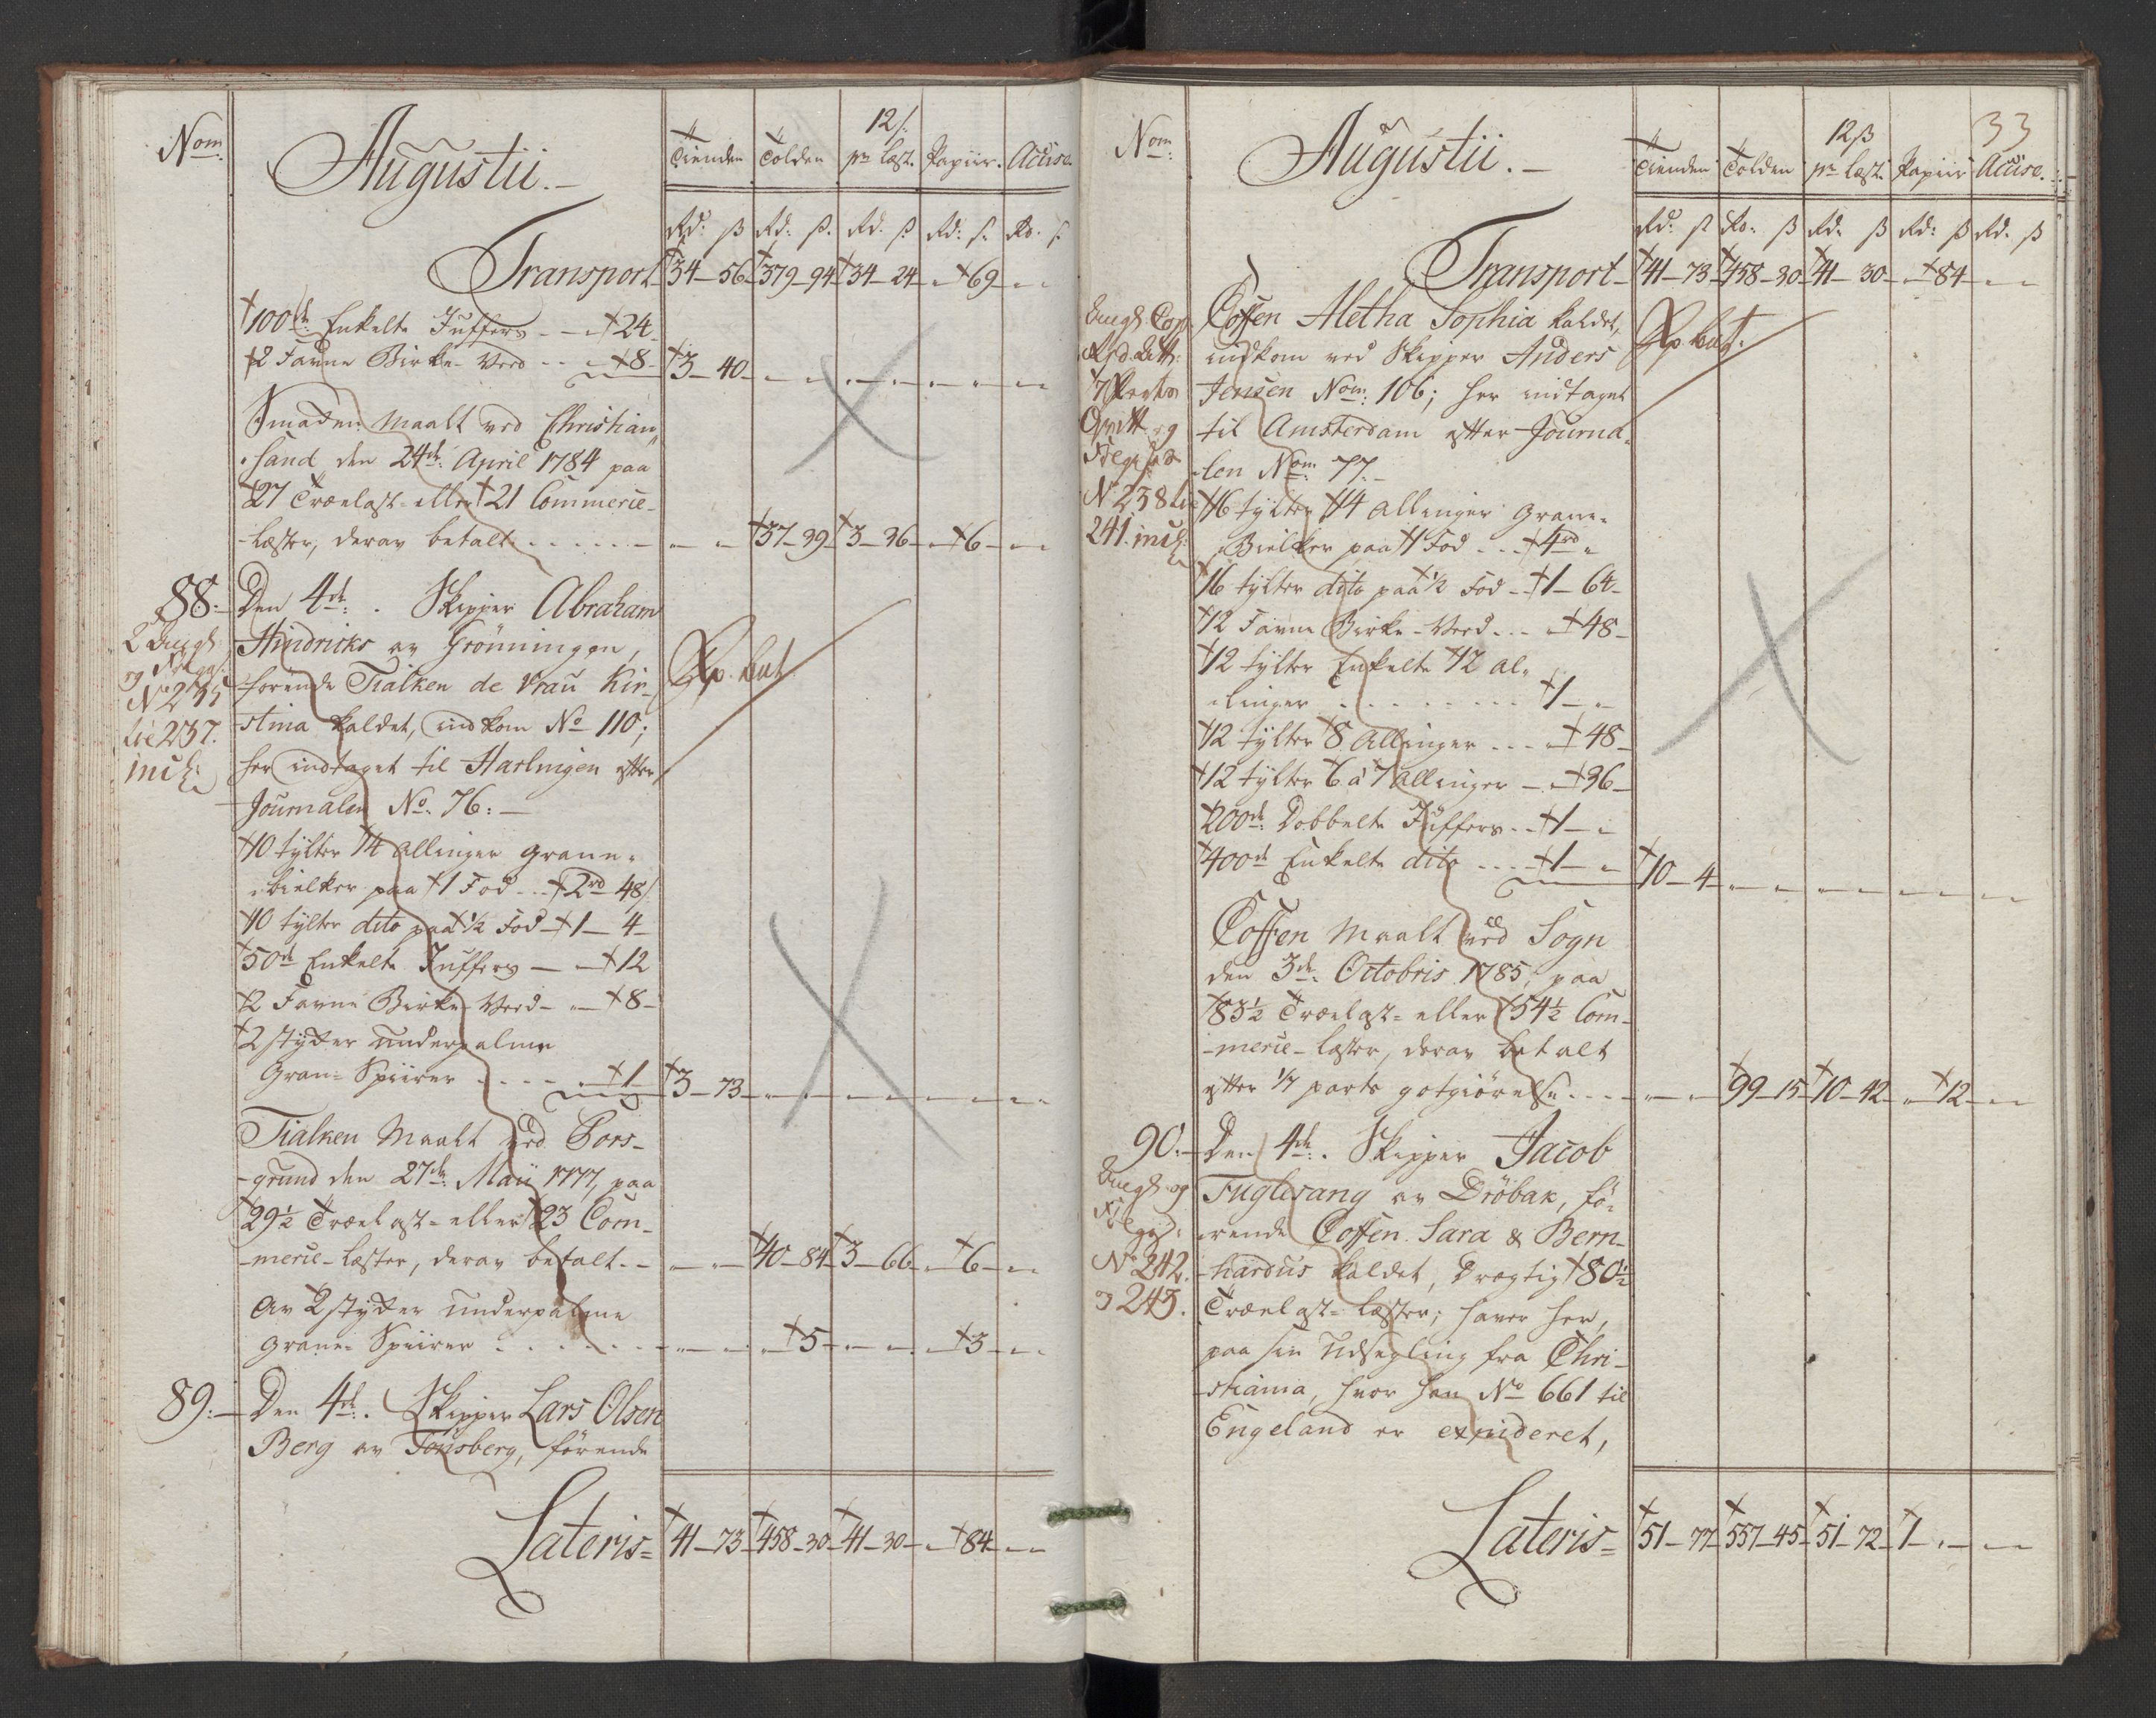 Nom:
Augustii.
Tienden Tolden 12/: pr Læst. Papiir. Accise.
Rd: ß Rd: ß. Rd. ß Rd: ß. Rd. ß
Transport 34-56 379-94 34-24 - 69 -
100de Enkelte Juffers - - 24
2 Favne Birke-Veed - - 8- 3-40
Smakken Maalt ved Christian
sand den 24de April 1784 paa
27 Trælast- eller 21 Commercie-
-læster, derav betalt . . . . . . 37-39 3-36 - 6 -
88. Den 4de. Skipper Abraham
Hindricks av Grönningen,
førende Tialken de Vrau Kir-
-stina kaldet, indkom No 110;
her indtaget til Harlingen efter
Journalen No. 76:
No 235
til 237.
incl:
Xp. bet.
10 tylter 14 allinger Grane-
bielker paa 1 Fod . . 2rd 48/
10 tylter dito paa 1/2 Fod - 1 - 4
50de Enkelte Juffers - - 12
2 Favne Birke-Veed - - 8-
2 stykker underpalme
Gran-Spiirer . . . . 1 3-73
Tialken Maalt ved Pors-
-grund den 27de Maii 1777, paa
29½ Trælast- eller 23 Com-
-mercie-læster, derav betalt - - 40-84 3-66 - 6 -
Av 2 stykker underpalme
Grane-Spiirer . . . . . . 5 - - 3 -
89. Den 4de. Skipper Lars Olsen
Berg av Tønsberg, førende
Lateris = 41-73 458-30 41-30 - 84 -
33
Nom:
Augustii.
Tienden Tolden 12ß pr Læst. Papiir Accise.
Rd: ß Rd: ß Rd. ß Rd: ß Rd. ß
Transport - 41-73 458-30 41-30 - 84 -
Coffen Aletha Sophia kaldet,
indkom ved Skipper Anders
Jensen Nom: 106; her indtaget
til Amsterdam efter Journa-
-len Nom 77.
No 238 til
241. incl:
Xp. bet.
16 tylter 14 allinger Grane-
Bielker paa 1 Fod . . . 4rd -
16 tylter dito paa 1/2 Fod - 1-64-
12 Favne Birke-Veed . . - 48-
12 tylter Enkelte 12 al-
-linger . . . . . . . . 1 - -
12 tylter 8 allinger . . . - 48-
12 tylter 6 à 7 allinger - - 36-
200de Dobbelte Juffers . . 1 - -
400de Enkelte dito . . . 1 - - 10-4
Coffen Maalt ved Sogn
den 3de Octobris 1785, paa
83½ Trælast- eller 54½ Com-
-mercie-læster, derav betalt
efter 1/7 parts gotgiørelse . . . 99-15 10-42 - 12 -
90. Den 4de. Skipper Jacob
Fuglesang av Dröbak, fø-
-rende Coffen Sara & Bern-
-hardus kaldet, Drægtig 80½
Trælast-læster; haver her,
paa sin Udsegling fra Chri-
-stiania, hvor han No 661 til
Engeland er expideret,
No 242.
og 243.
Lateris = 51-77 557-45 51-72 1 - -